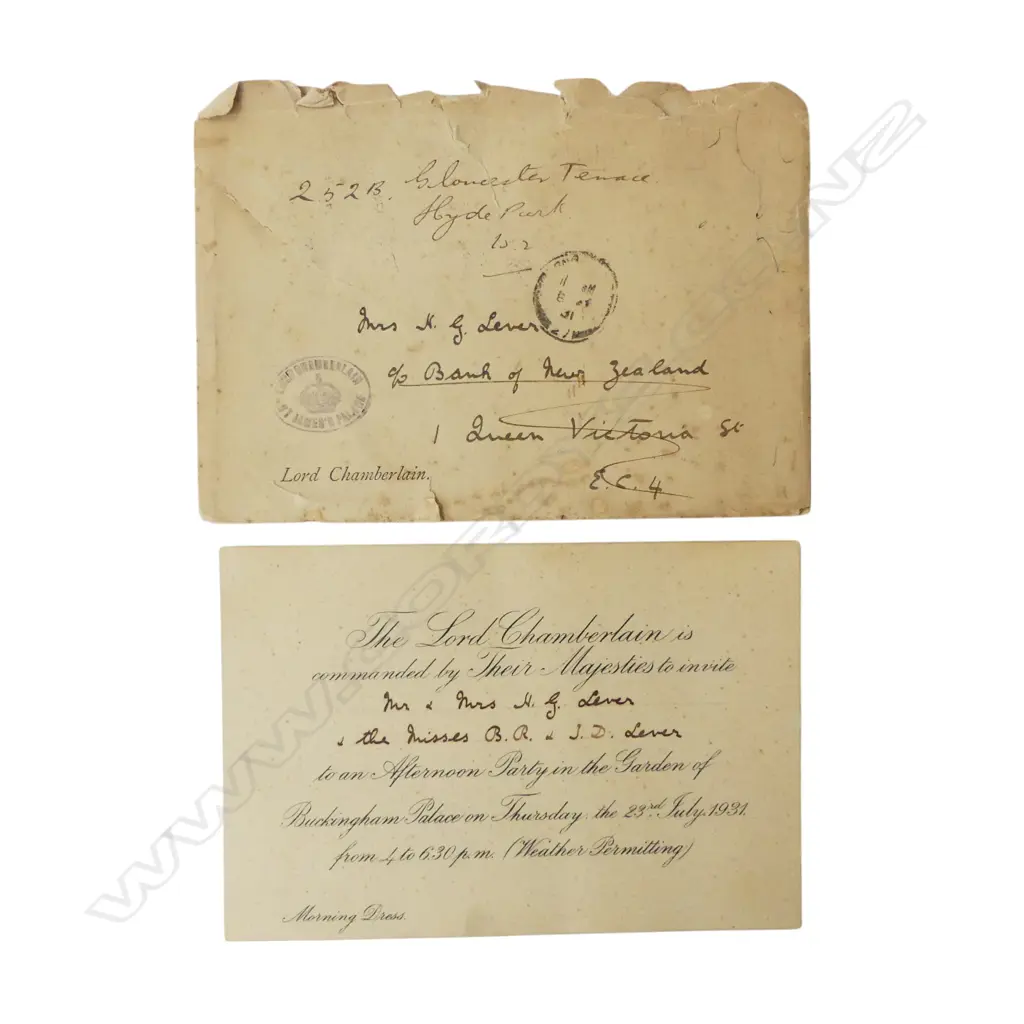 252B. Gloucester Terrace
Hyde Park
W.2
Mrs H. G. Lever
c/o Bank of New Zealand
1 Queen Victoria St
E.C.4
LORD CHAMBERLAIN
ST JAMES'S PALACE
Lord Chamberlain.
The Lord Chamberlain is
commanded by Their Majesties to invite
Mr & Mrs H. G. Lever
& the Misses B. R. & J. D. Lever
to an Afternoon Party in the Garden of
Buckingham Palace on Thursday, the 23rd July, 1931,
from 4 to 6.30 p.m. (Weather Permitting)
Morning Dress.